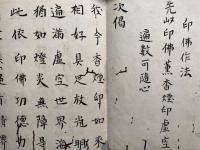 印佛作法
先以印佛薰香煙印虛空
遍數可隨心
次偈
我今香煙印如來
相好具足放光
遍滿虛空世界
如煙炎無障
此依印佛功